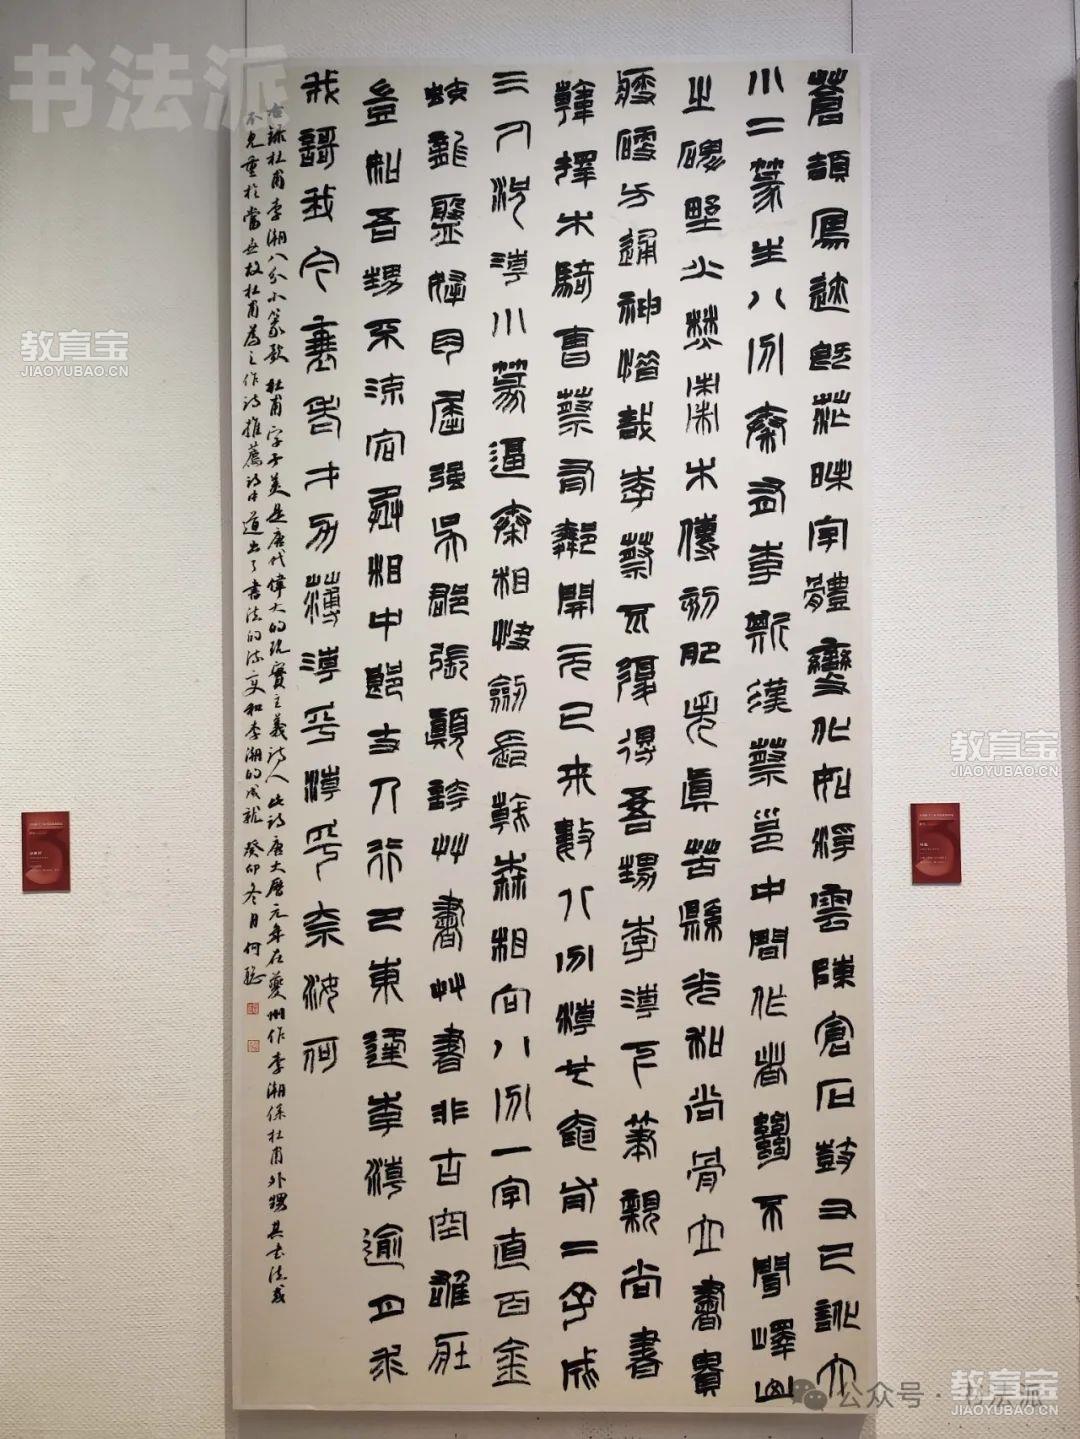 蒼頡鳥迹既茫昧字體變化如浮雲陳倉石鼓又已訛大
小二篆生八分秦有李斯漢蔡邕中間作者寂不聞嶧山
之碑野火焚棗木傳刻肥失真苦縣光和尚骨立書貴
瘦硬方通神惜哉李蔡不復得吾甥李潮下筆親尚書
韓擇木騎曹蔡有鄰開元已來數八分潮也奄有二子成
三人況潮小篆逼秦相快劍長戟森相向八分一字直百金
蛟龍盤拏肉屈強吳郡張顛誇草書草書非古空雄壯
豈如吾甥不流宕丞相中郎丈人行巴東逢李潮逾月求
我歌我今衰老才力薄潮乎潮乎奈汝何
右錄杜甫李潮八分小篆歌 杜甫字子美是唐代偉大的現實主義詩人此詩唐大曆元年在夔州作李潮係杜甫外甥其書法或
不見重於當世故杜甫為之作詩推薦詩中道出了書法的流變和李潮的成就 癸卯冬月何
书法派
教育宝
JIAOYUBAO.CN
教育宝
JIAOYUBAO.CN
教育宝
JIAOYUBAO.CN
公众号·书法派